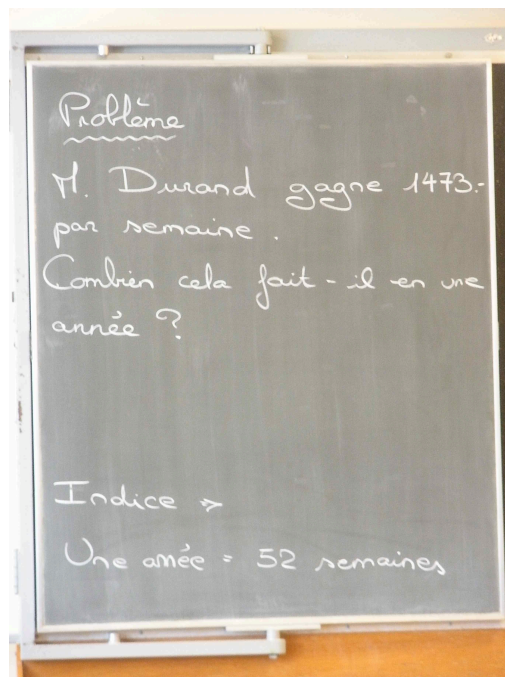 Problème
M. Durand gagne 1473.-
par semaine.
Combien cela fait-il en une
année ?
Indice →
Une année = 52 semaines